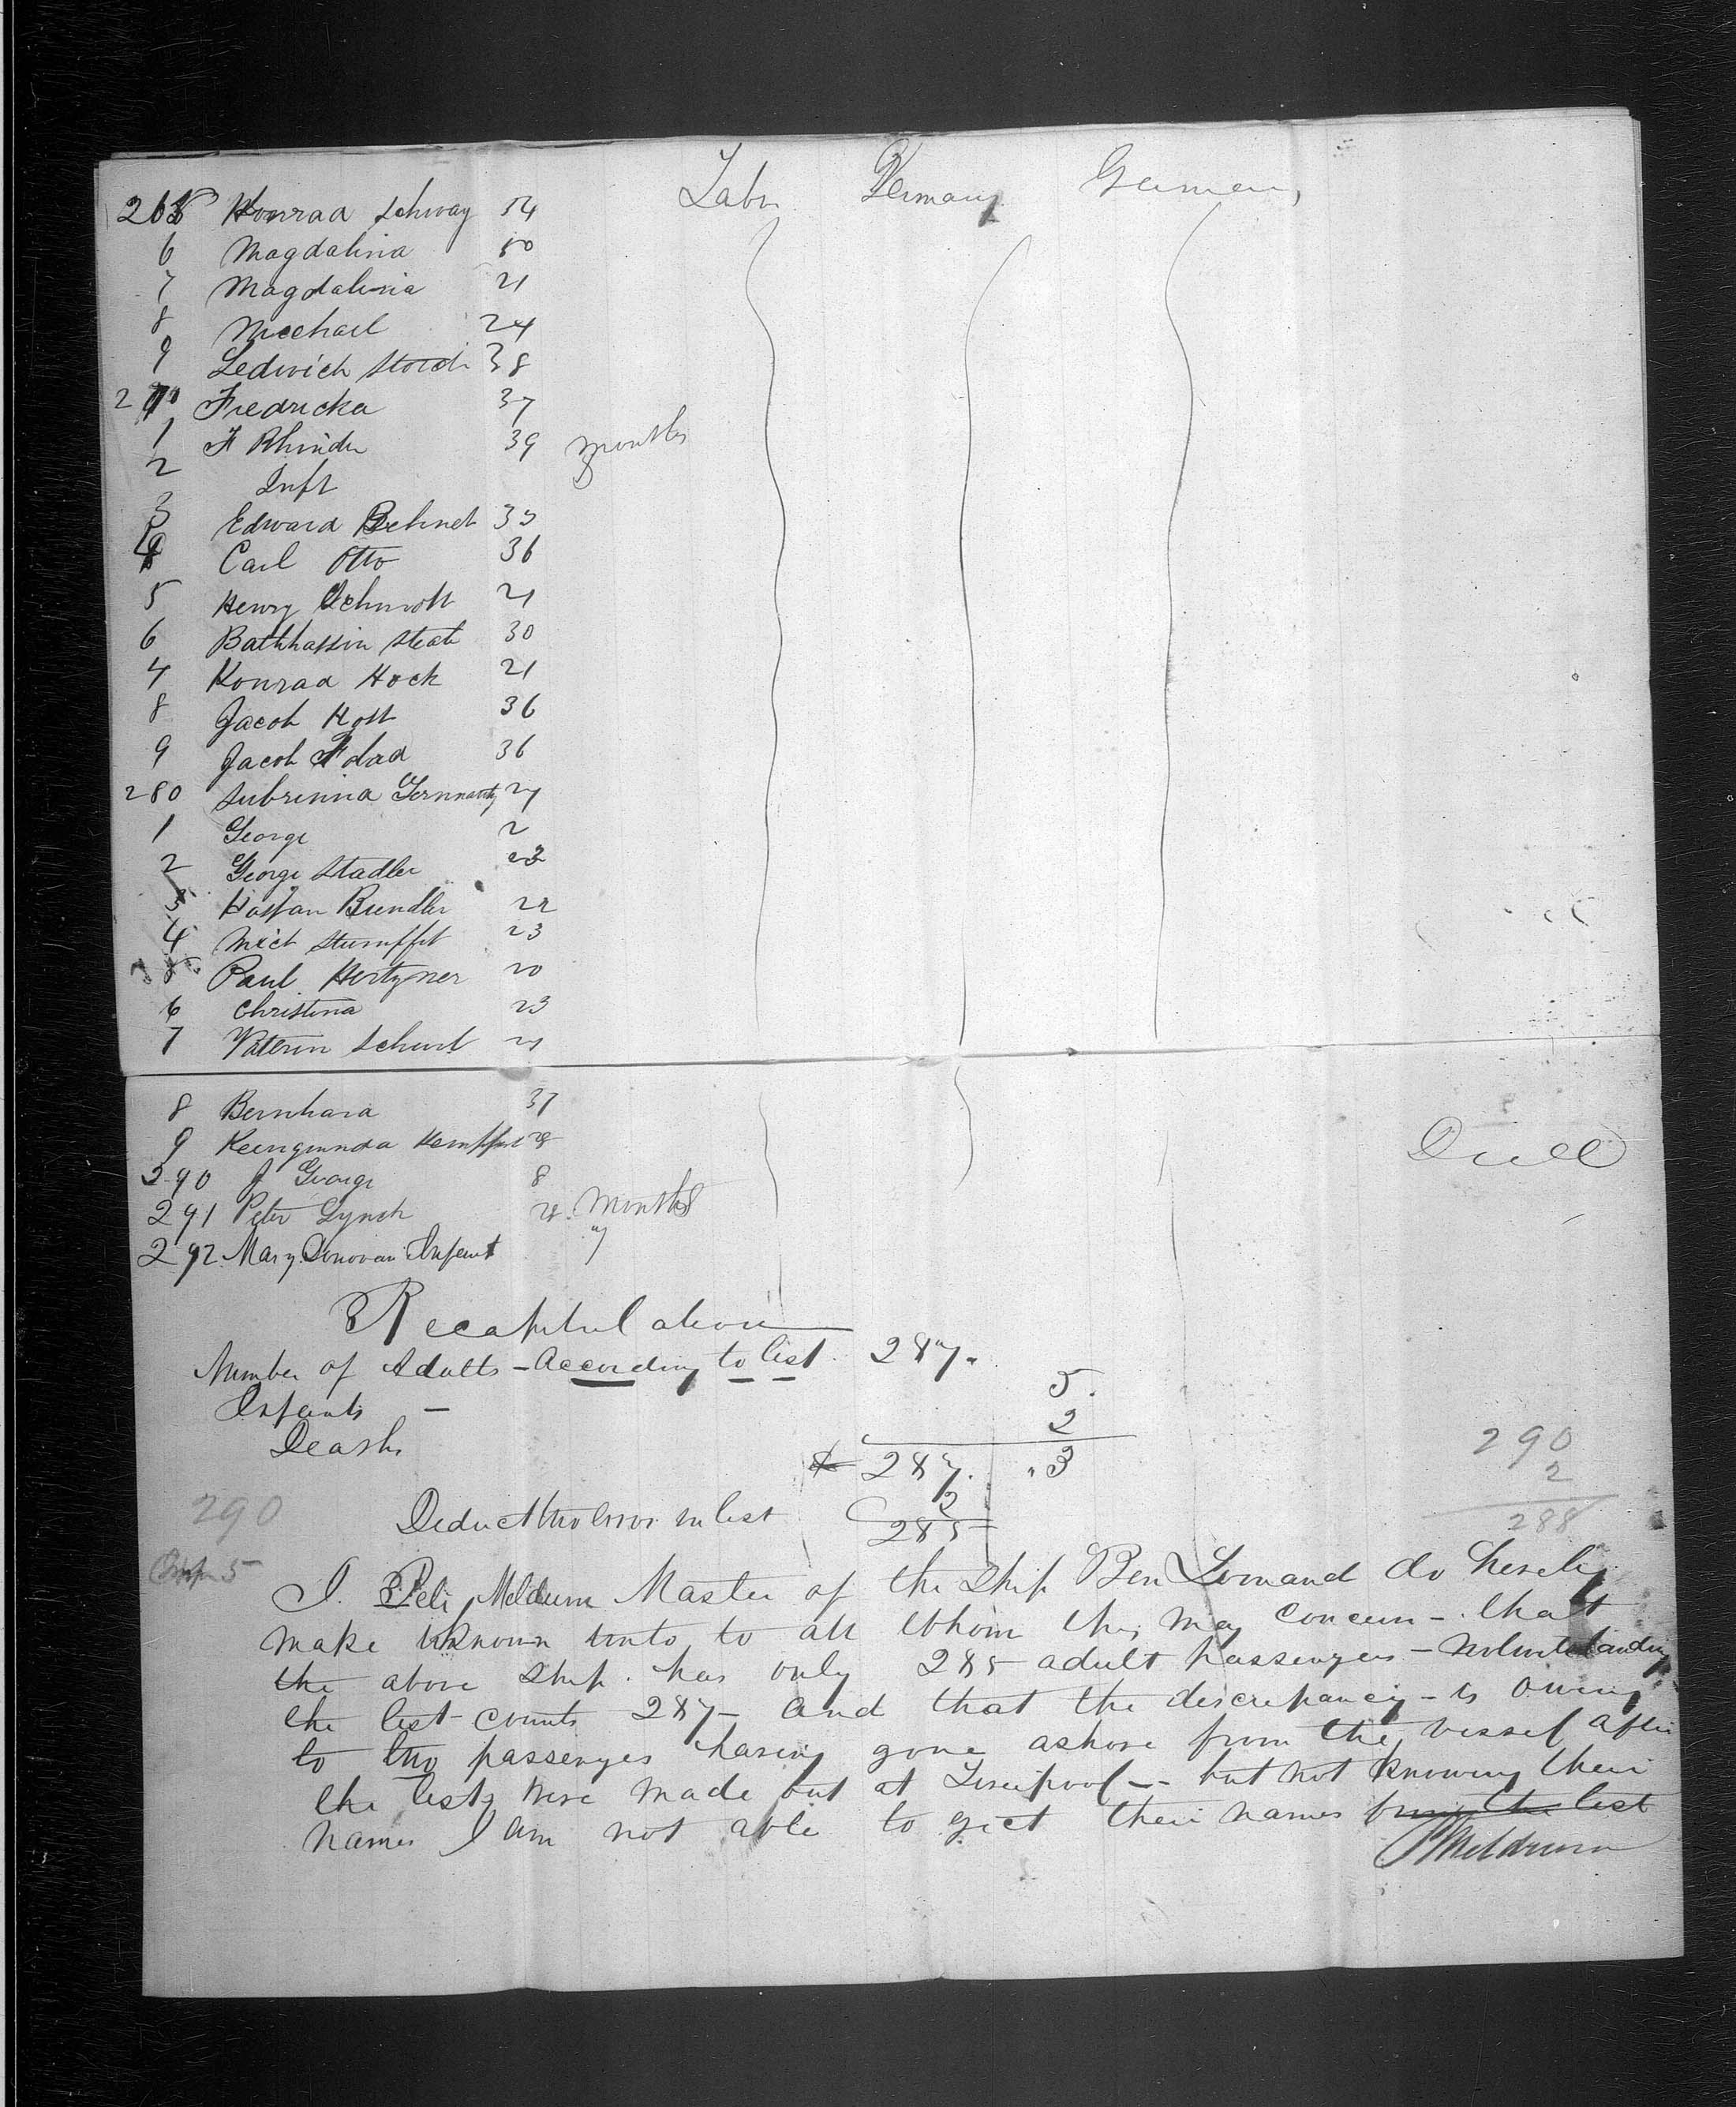 265 Konrad Schway 54 Labr Germany Germany
6 Magdalina 50
7 Magdalinia 21
8 Meechael 24
9 Ledwich 38
270 Fredricka 37
1 F Rhinder 39 months
2 Inft
3 Edward Behnet 35
4 Carl Otto 36
5 Henry Schmott 21
6 30
7 Konrad Hock 21
8 Jacob Kost 36
9 Jacob 36
280 Subrinna 27
1 George 2
2 George Stadler 23
3 Bundler 22
4 Mict Stumffit 23
5 Paul Hertzner 20
6 Christina 23
7 Schurt 21
8 Bernhara 37
9
290 J George 8
291 Peter Lynch months
292 Mary Donovan Infant "
Duell
Recapitulation
Number of Adults - According to list. 287.
Infants - 5.
Deaths 2
287. "3
290 2
288
290
Deduct two error in list 2
285
Inf 5
I. Peter Meldrum Master of the Ship Ben Lomand do hereby
make known unto to all whom they may concern - that
the above ship has only 285 adult passengers - notwithstanding
the list counts 287 - and that the discrepancy - is owing
to two passengers having gone ashore from the vessel after
the lists were made out at Liverpool -- but not knowing their
names I am not able to their names from the list
P Meldrum